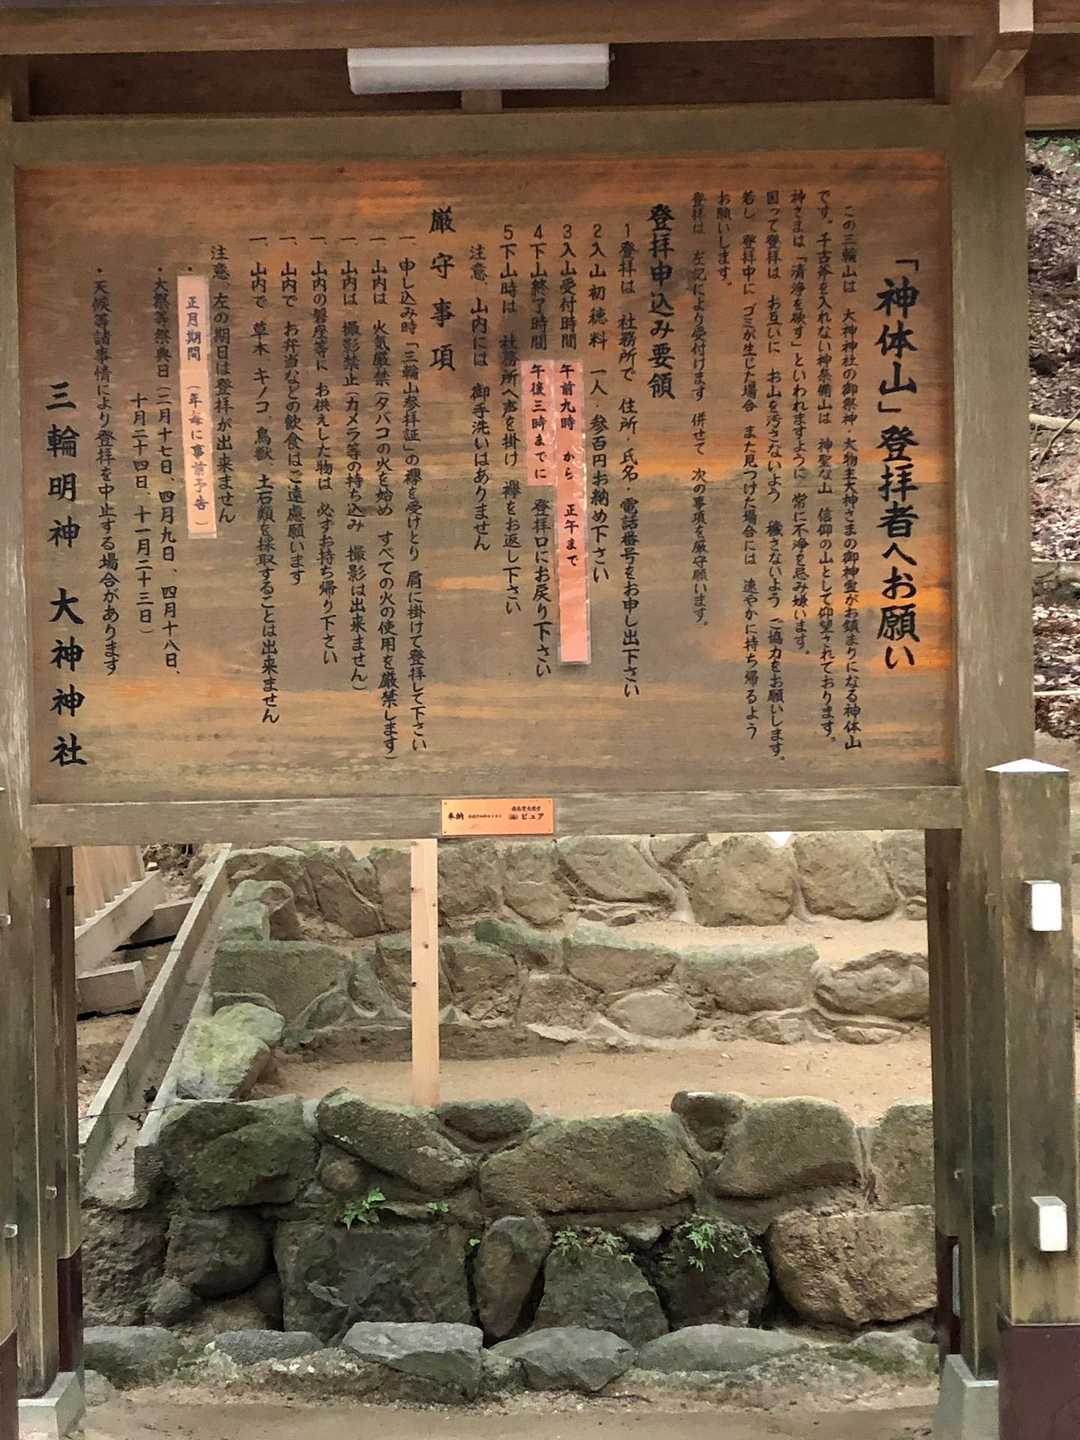 「神体山」登拝者へお願い
この三輪山は 大神神社の御祭神・大物主大神さまの御神霊がお鎮まりになる神体山
です。千古斧を入れない神奈備山は 神聖な山 信仰の山として仰望されております。
神さまは「清浄を映す」といわれますように 常に不浄を忌み嫌います。
因って登拝は お互いに お山を汚さないよう 穢さないよう ご協力をお願いします。
若し 登拝中に ゴミが生じた場合 また見つけた場合には 速やかに持ち帰るよう
お願いします。
登拝は 左記により受付けます 併せて 次の事項を厳守願います。
登拝申込み要領
1登拝は 社務所で 住所・氏名・電話番号をお申し出下さい
2入山初穂料 一人・参百円お納め下さい
3入山受付時間 午前九時 から 正午まで
4下山終了時間 午後三時までに 登拝口にお戻り下さい
5下山時は 社務所へ声を掛け 襷をお返し下さい
注意、山内には 御手洗いはありません
厳守事項
一、申し込み時「三輪山参拝証」の襷を受けとり 肩に掛けて登拝して下さい
一、山内は 火気厳禁(タバコの火を始め すべての火の使用を厳禁します)
一、山内は 撮影禁止(カメラ等の持ち込み 撮影は出来ません)
一、山内の磐座等に お供えした物は 必ずお持ち帰り下さい
一、山内で お弁当などの飲食はご遠慮願います
一、山内で 草木、キノコ、鳥獣、土石類を採取することは出来ません
注意、左の期日は登拝が出来ません
・正月期間 (年毎に事前予告)
・大祭等祭典日(二月十七日、四月九日、四月十八日、
十月二十四日、十一月二十三日)
・天候等諸事情により登拝を中止する場合があります
三輪明神 大神神社
奉納
ピュア